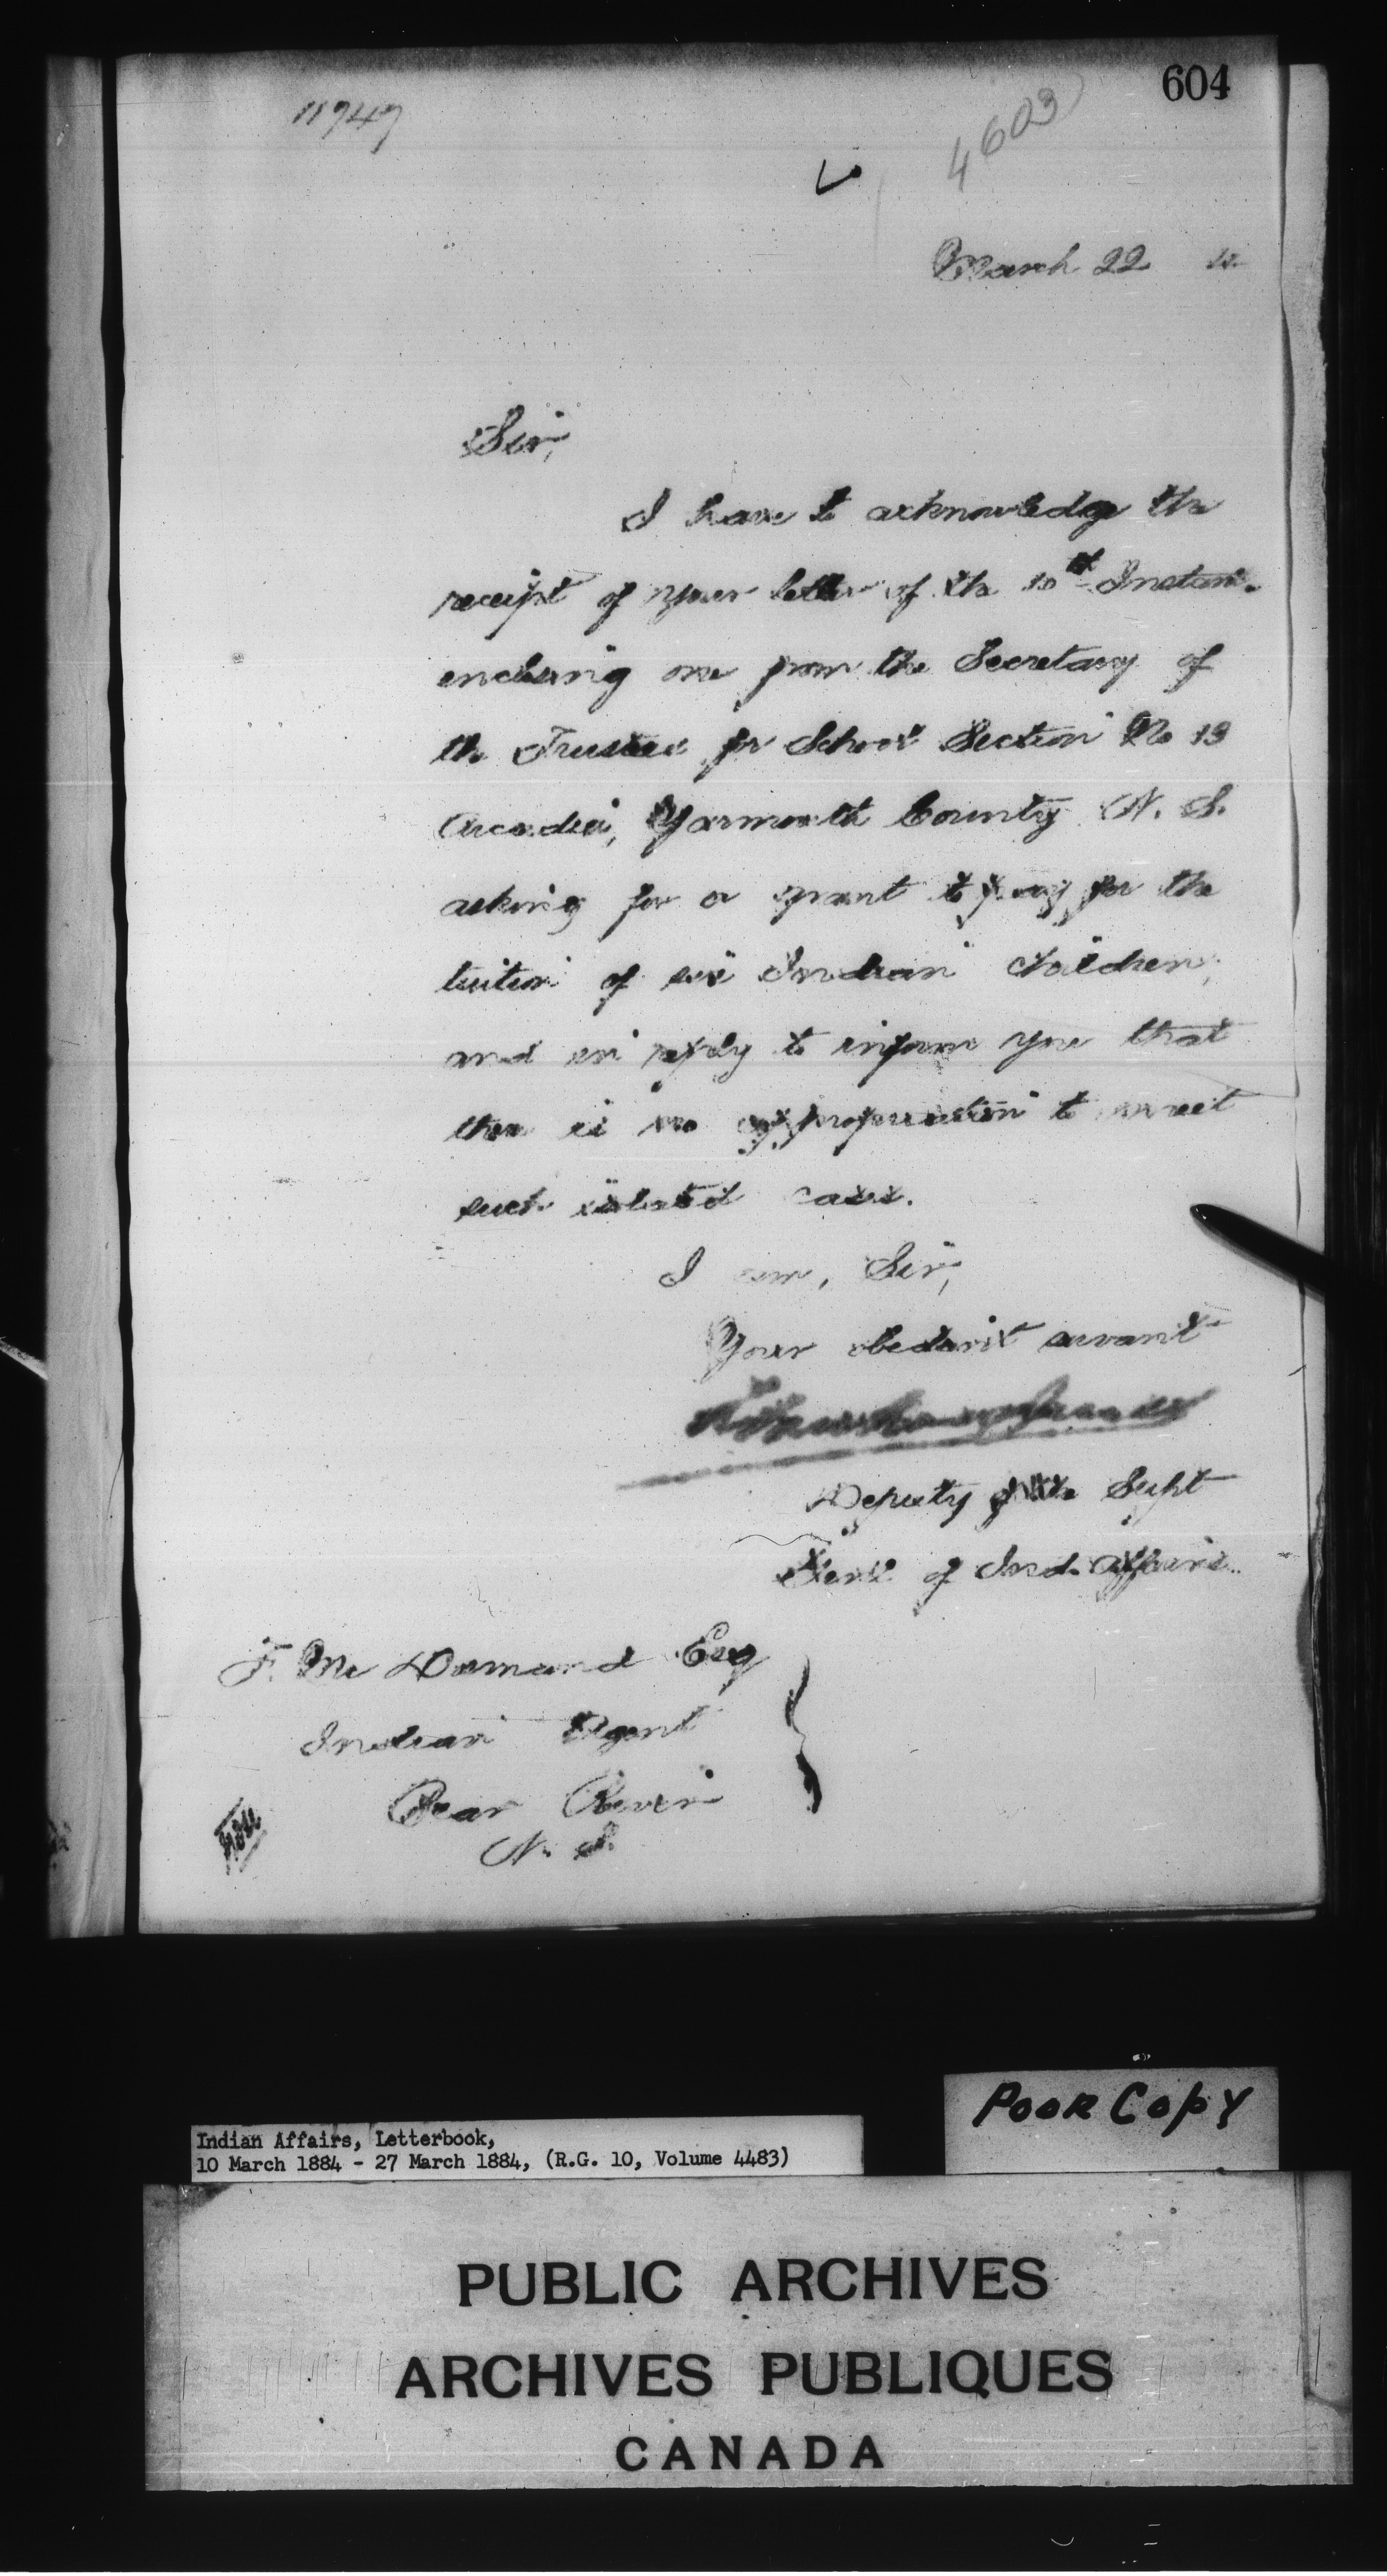 604
11747
4603
March 22
Sir,
I have to acknowledge the
receipt of your letter of the 10th Instant
enclosing one from the Secretary of
the Trustees for School Section No 13
Arcadia, Yarmouth County N. S.
asking for a grant to pay for the
tuition of six Indian children,
and in reply to inform you that
there is no appropriation to meet
such isolated cases.
I am, Sir,
Your obedient servant
Deputy of the Supt
Genl of Ind. Affairs.
F. McDormand Esq
Indian Agent
Bear River
N. S.
POOR COPY
Indian Affairs, Letterbook,
10 March 1884 - 27 March 1884, (R.G. 10, Volume 4483)
PUBLIC ARCHIVES
ARCHIVES PUBLIQUES
CANADA